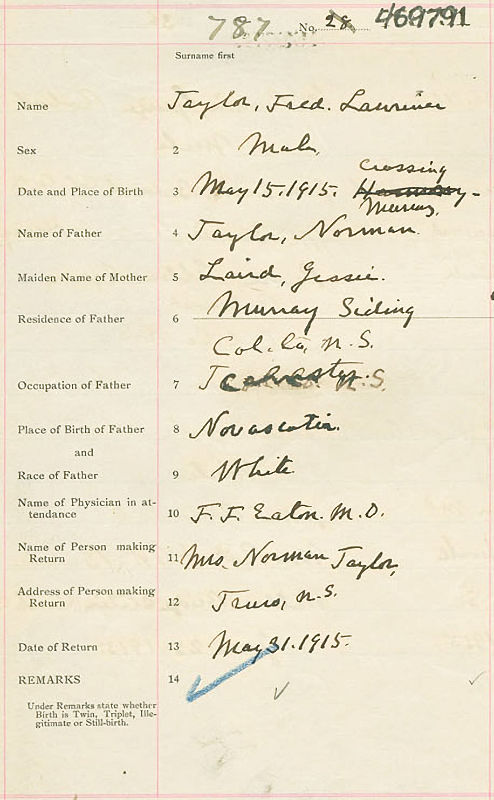 787 No. 28 469791
Surname first
Name Taylor, Fred. Lawrence
Sex 2 Male,
Date and Place of Birth 3 May 15. 1915. crossing Murray,
Name of Father 4 Taylor, Norman.
Maiden Name of Mother 5 Laird, Jessie.
Residence of Father 6 Murray Siding
Col. Co, N.S.
Occupation of Father 7 N.S.
Place of Birth of Father 8 Novascotia.
and
Race of Father 9 White
Name of Physician in at-
tendance 10 F. F. Eaton. M.D.
Name of Person making
Return 11 Mrs. Norman Taylor,
Address of Person making
Return 12 Truro, N.S.
Date of Return 13 May 31. 1915.
REMARKS 14
Under Remarks state whether
Birth is Twin, Triplet, Ille-
gitimate or Still-birth.